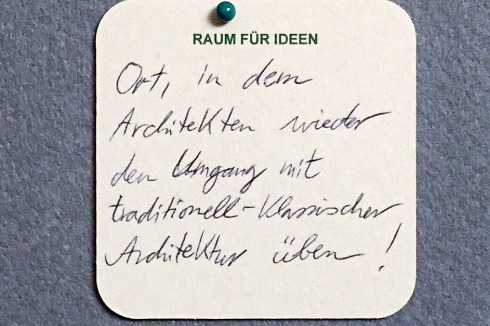 RAUM FÜR IDEEN
Ort, in dem
Architekten wieder
den Umgang mit
traditionell-klassischer
Architektur üben!